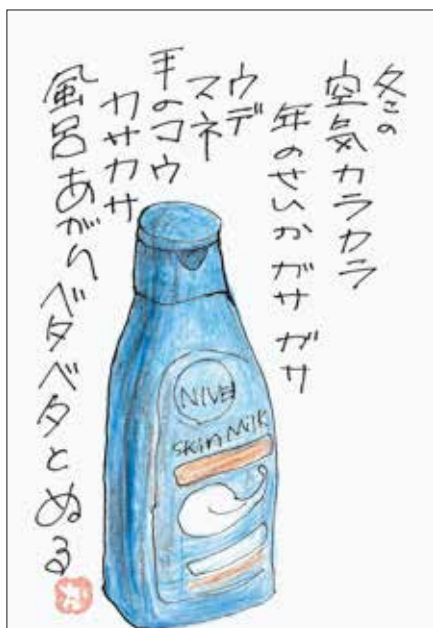 冬の
空気カラカラ
年のせいかガサガサ
ウデ
スネ
手のコウ
カサカサ
風呂あがりベタベタとぬる
NIVEA
Skin Milk